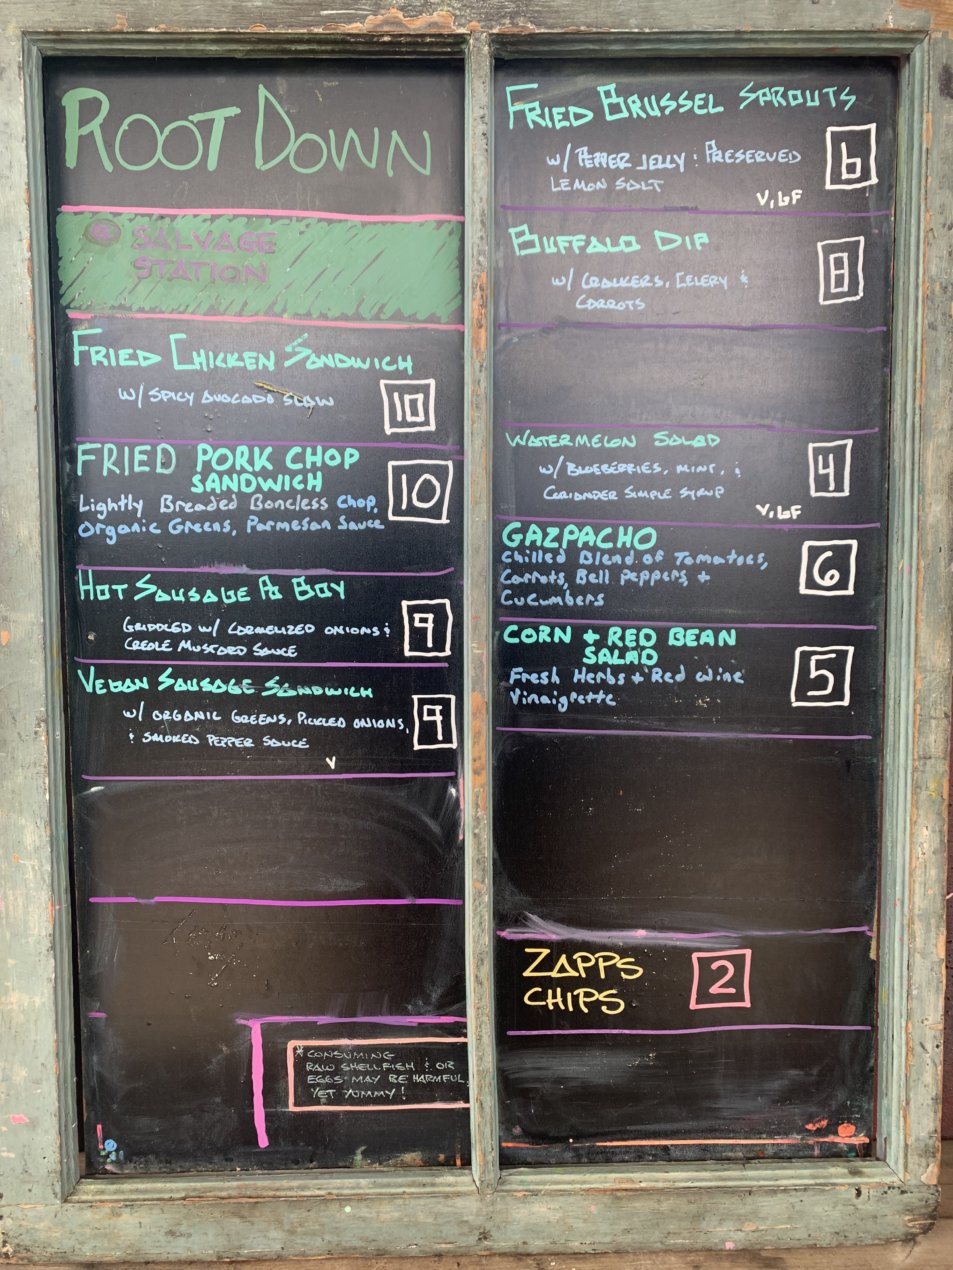 ROOT DOWN
@ SALVAGE
STATION
FRIED CHICKEN SANDWICH
W/ SPICY AVOCADO SLAW
10
FRIED PORK CHOP
SANDWICH
Lightly Breaded Boneless Chop,
Organic Greens, Parmesan Sauce
10
HOT SAUSAGE PO BOY
GRIDDLED W/ CARMELIZED ONIONS &
CREOLE MUSTARD SAUCE
9
VEGAN SAUSAGE SANDWICH
W/ ORGANIC GREENS, PICKLED ONIONS,
& SMOKED PEPPER SAUCE
9
V
* CONSUMING
RAW SHELLFISH & OR
EGGS MAY BE HARMFUL,
YET YUMMY!
FRIED BRUSSEL SPROUTS
W/ PEPPER JELLY & PRESERVED
LEMON SALT
6
V, GF
BUFFALO DIP
W/ CRACKERS, CELERY &
CARROTS
8
WATERMELON SALAD
W/ BLUEBERRIES, MINT, &
CORIANDER SIMPLE SYRUP
4
V, GF
GAZPACHO
Chilled Blend of Tomatoes,
Carrots, Bell Peppers, +
Cucumbers
6
CORN + RED BEAN
SALAD
Fresh Herbs + Red Wine
Vinaigrette
5
ZAPPS
CHIPS
2